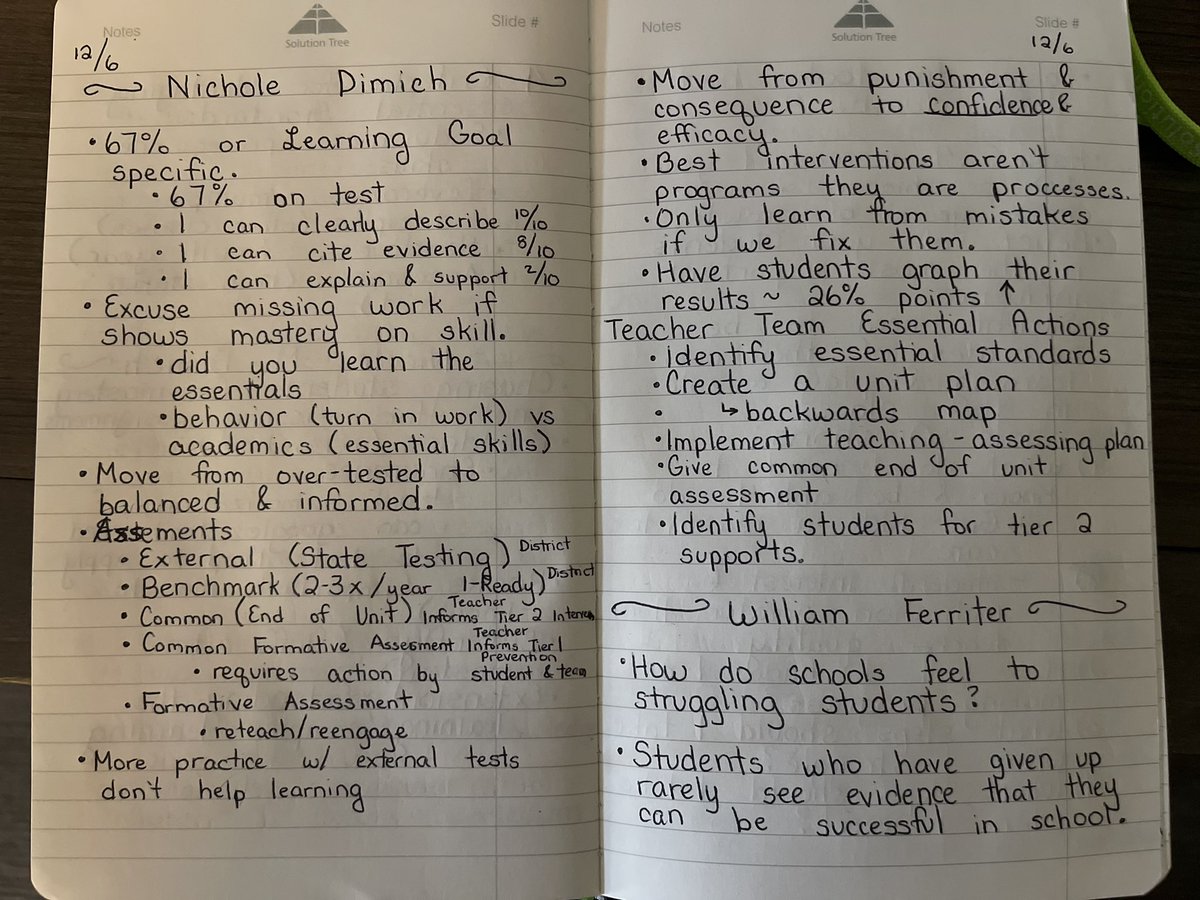 Notes
Solution Tree
Slide #
12/6
Nichole Dimich
• 67% or Learning Goal
specific.
• 67% on test
• I can clearly describe 10/10
• I can cite evidence 8/10
• I can explain & support 2/10
• Excuse missing work if
shows mastery on skill.
• did you learn the
essentials
• behavior (turn in work) vs
academics (essential skills)
• Move from over-tested to
balanced & informed.
• Assements
• External (State Testing) District
• Benchmark (2-3x/year I-Ready) District
• Common (End of Unit) Teacher Informs Tier 2
• Common Formative Assesment Teacher Informs Tier 1
Prevention
• requires action by student & team
• Formative Assessment
• reteach/reengage
• More practice w/ external tests
don't help learning
Notes
Solution Tree
Slide #
12/6
• Move from punishment &
consequence to confidence &
efficacy.
• Best interventions aren't
programs they are proccesses.
• Only learn from mistakes
if we fix them.
• Have students graph their
results ~ 26% points ↑
Teacher Team Essential Actions
• Identify essential standards
• Create a unit plan
• ↳ backwards map
• Implement teaching-assessing plan
• Give common end of unit
assessment
• Identify students for tier 2
supports.
William Ferriter
• How do schools feel to
struggling students?
• Students who have given up
rarely see evidence that they
can be successful in school.